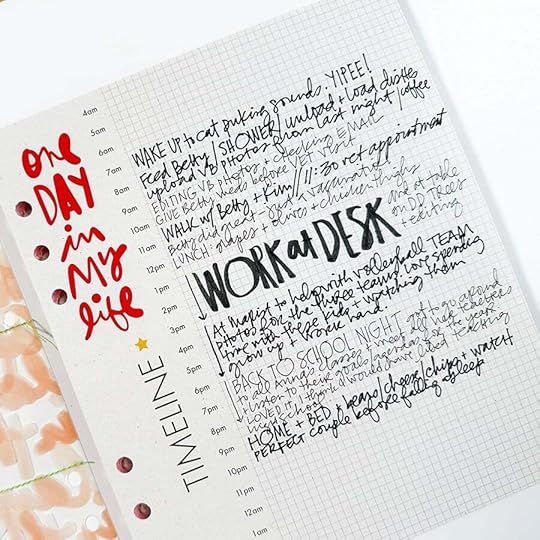 one
DAY
in
My
life
TIMELINE
4am
5am
6am
7am
8am
9am
10am
11am
12pm
1pm
2pm
3pm
4pm
5pm
6pm
7pm
8pm
9pm
10pm
11pm
12am
1am
WAKE UP to cat puking sounds. YIPEE!
Feed Betty / SHOWER / unload + load dishes
upload VB photos from last night / coffee
EDITING VB photos + checking EMAIL
GIVE Betty meds before VET visit
WALK w/ Betty + Kim // 11:30 vet appointment
Betty did great - got 2 vaccinations
LUNCH: grapes + olives + chicken thighs and at table
WORK at DESK
on DD, TREES
+ editing
At Marist to help with volleyball TEAM
photos for the three teams. Love spending
time with these kids + watching them
grow up + work hard.
BACK TO SCHOOL NIGHT got to go around
to all Anna's classes + meet all her teachers
+ listen to their goals + agendas for the year.
LOVED it. I think I would have liked teaching
high school.
HOME + BED + beans/cheese/chips + watch
PERFECT couple before falling asleep